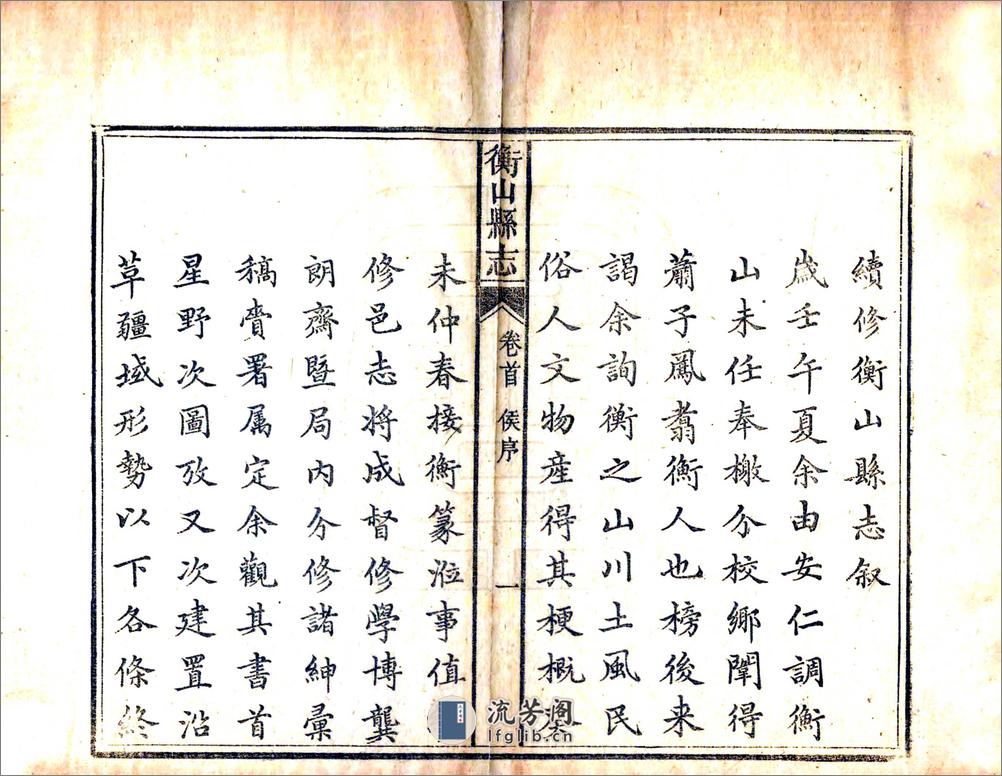 續修衡山縣志叙
歲壬午夏余由安仁調衡
山未任奉檄分校鄉闈得
蕭子鳳翥衡人也榜後来
謁余詢衡之山川土風民
俗人文物產得其梗概
衡山縣志
卷首 侯序
一
未仲春接衡篆涖事值
修邑志将成督修學博龔
朗齋暨局内分修諸紳彙
稿賫署属定余觀其書首
星野次圖攷又次建置沿
草疆域形勢以下各條終
流芳阁
lfglib.cn